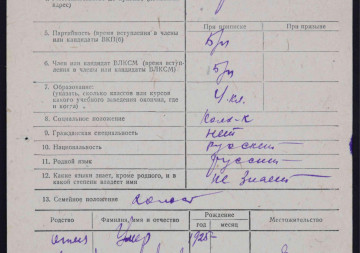 адрес)
При приписке При призыве
5. Партийность (время вступления в члены или кандидаты ВКП(б) б/п
6. Член или кандидат ВЛКСМ (время вступления в члены или кандидаты ВЛКСМ) б/п
7. Образование:
(указать, сколько классов или курсов какого учебного заведения окончил, где и когда) 4 кл.
8. Социальное положение кол-к
9. Гражданская специальность нет
10. Национальность русский
11. Родной язык русский
12. Какие языки знает, кроме родного, и в какой степени владеет ими не знает
13. Семейное положение холост
Родство Фамилия, имя и отчество Рождение Местожительство
год месяц
отец Умер 1925